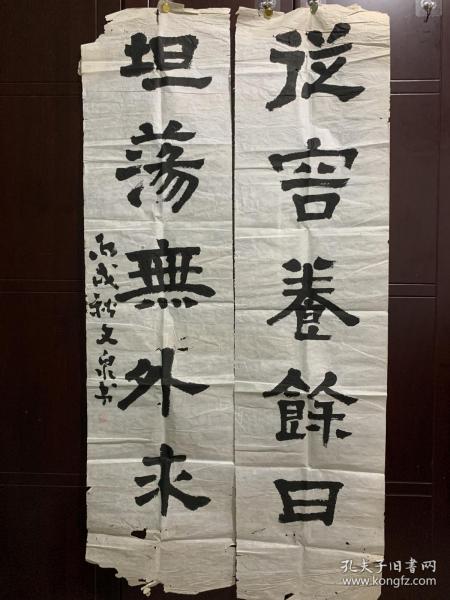 從容養餘日
坦蕩無外求
戊戌秋文泉书
孔夫子旧书网
www.kongfz.com